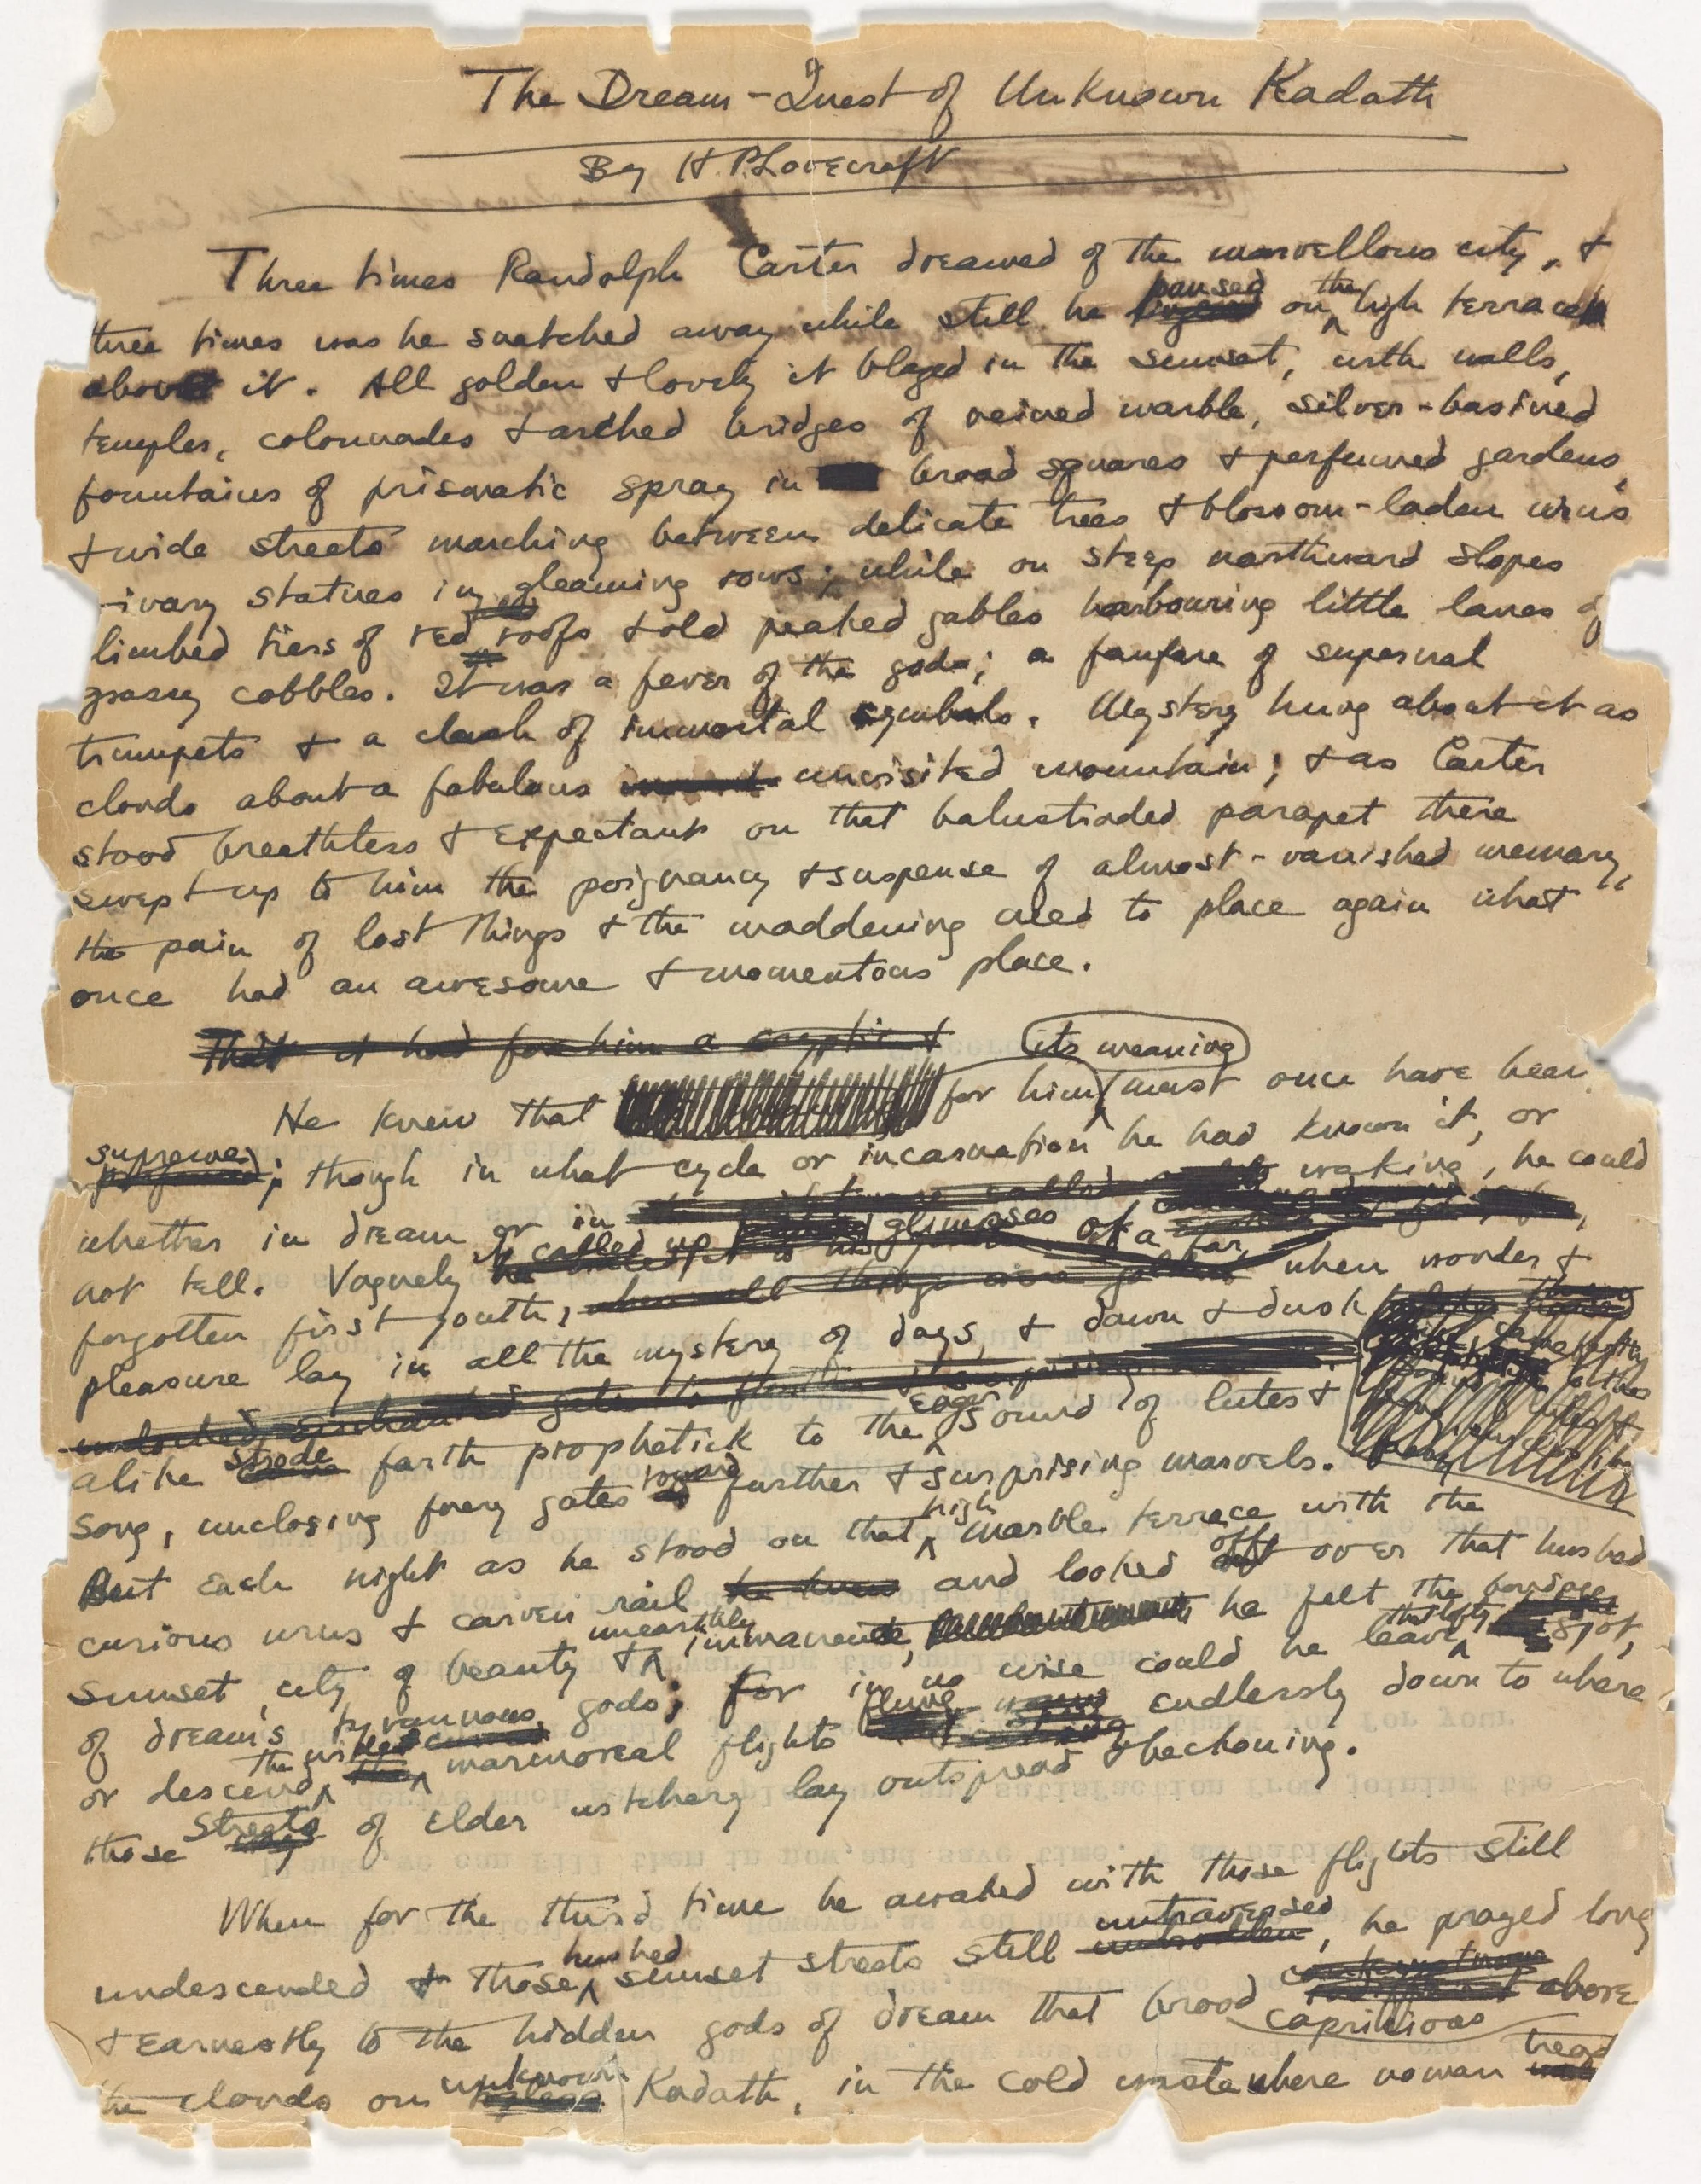 The Dream-Quest of Unknown Kadath
By H. P. Lovecraft
Three times Randolph Carter dreamed of the marvellous city, &
three times was he snatched away while still he paused on the high terrace
above it. All golden & lovely it blazed in the sunset, with walls,
temples, colonnades & arched bridges of veined marble, silver-basined
fountains of prismatic spray in broad squares & perfumed gardens,
& wide streets marching between delicate trees & blossom-laden urns
ivory statues in gleaming rows; while on steep northward slopes
limbed tiers of red roofs & old peaked gables harbouring little lanes of
grassy cobbles. It was a fever of the gods; a fanfare of supernal
trumpets & a clash of immortal cymbals. Mystery hung about it as
clouds about a fabulous unvisited mountain; & as Carter
stood breathless & expectant on that balustraded parapet there
swept up to him the poignancy & suspense of almost-vanished memory,
the pain of lost things & the maddening need to place again what
once had an awesome & momentous place.
That it had for him a cryptic &
its meaning
He knew that for him must once have been
supreme; though in what cycle or incarnation he had known it, or
whether in dream or in waking, he could
not tell. Vaguely it called up glimpses of a far,
forgotten first youth, when wonder &
pleasure lay in all the mystery of days, & dawn & dusk
alike strode forth prophetick to the eager sound of lutes &
song, unclosing faery gates toward further & surprising marvels.
But each night as he stood on that high marble terrace with the
curious urns & carven rail and looked off over that hushed
sunset city of beauty & unearthly immanence, he felt the bondage
of dream's tyrannous gods; for in no wise could he leave that lofty spot,
or descend the wide marmoreal flights flung endlessly down to where
those streets of elder witchery lay outspread & beckoning.
When for the third time he awaked with those flights still
undescended & those hushed sunset streets still untraversed, he prayed long
& earnestly to the hidden gods of dream that brood capricious above
the clouds on unknown Kadath, in the cold waste where no man tread